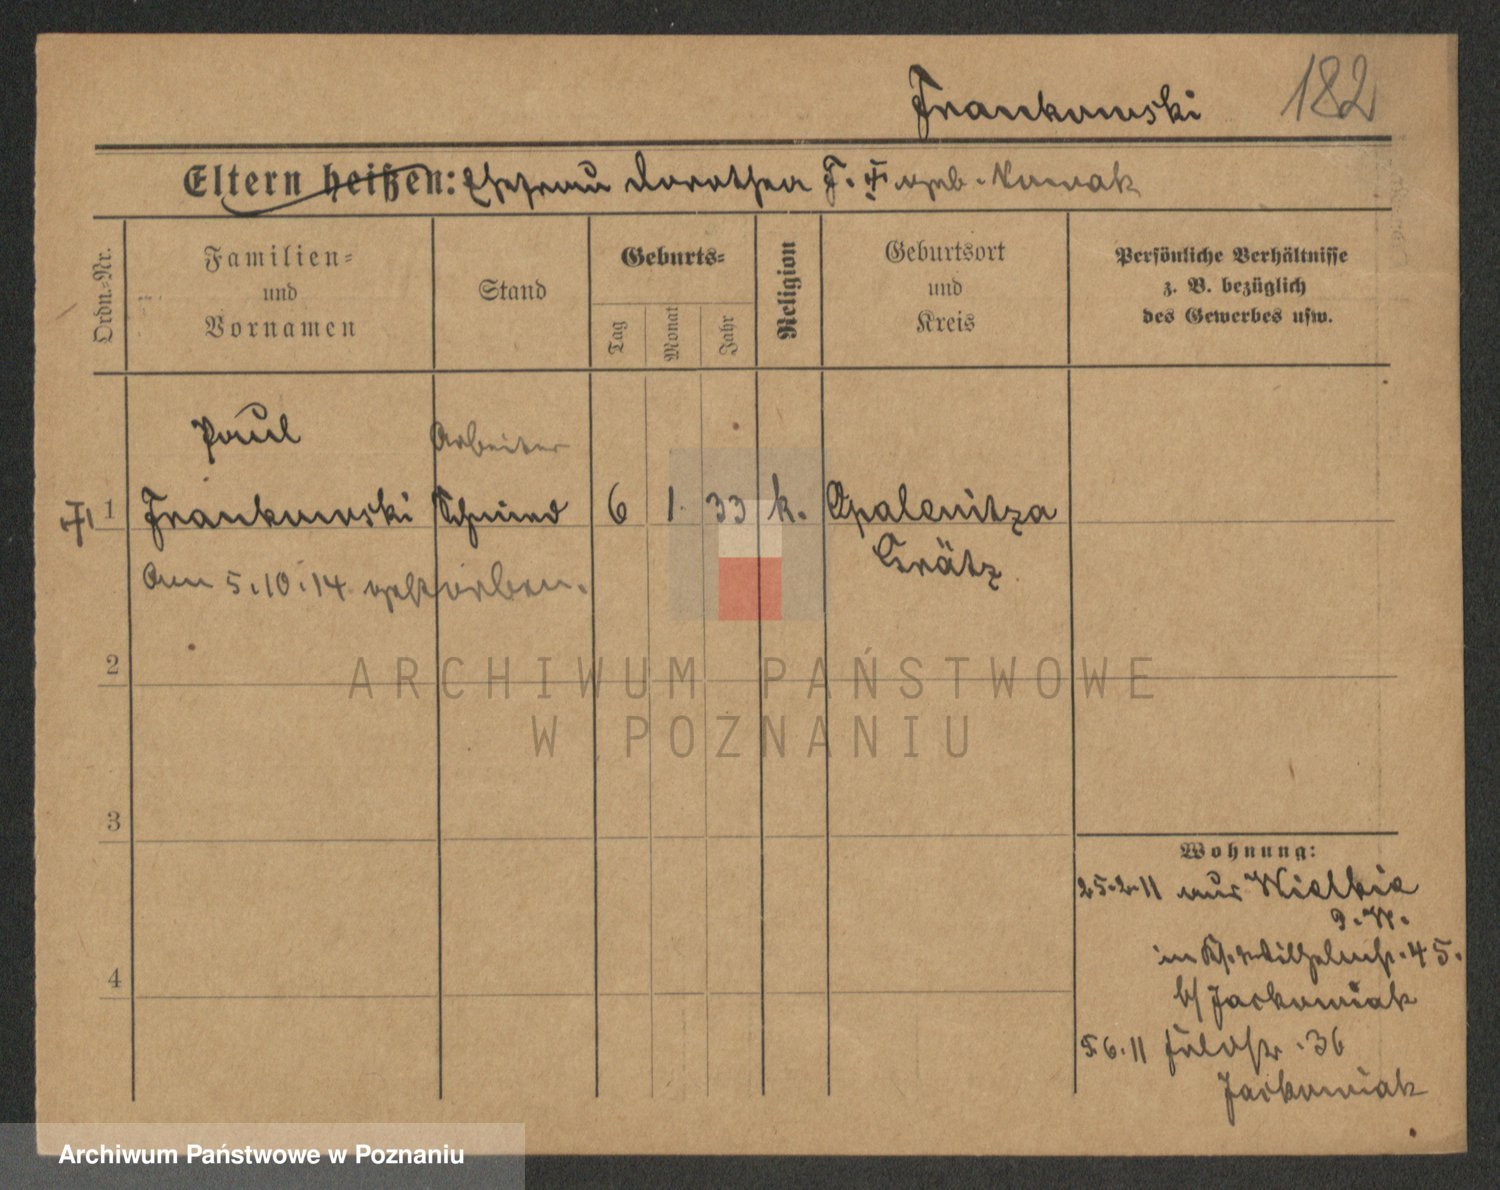 Frankowski
182
Eltern heißen: Ehefrau Dorothea F. geb. Nowak
Ordn.-Nr.
Familien-
und
Vornamen
Stand
Geburts-
Tag
Monat
Jahr
Religion
Geburtsort
und
Kreis
Persönliche Verhältnisse
z. B. bezüglich
des Gewerbes usw.
Paul
Arbeiter
1 Frankowski Schmied 6 1. 33 k. Opalenitza
Grätz
Am 5.10.14 gestorben.
2
ARCHIWUM PAŃSTWOWE
W POZNANIU
3
4
Wohnung:
25.2.11 aus Wielkie
P. W.
in Wilhelmstr. 45.
b/ Jackowiak
5.6.11 Feldstr. 36
Jackowiak
Archiwum Państwowe w Poznaniu